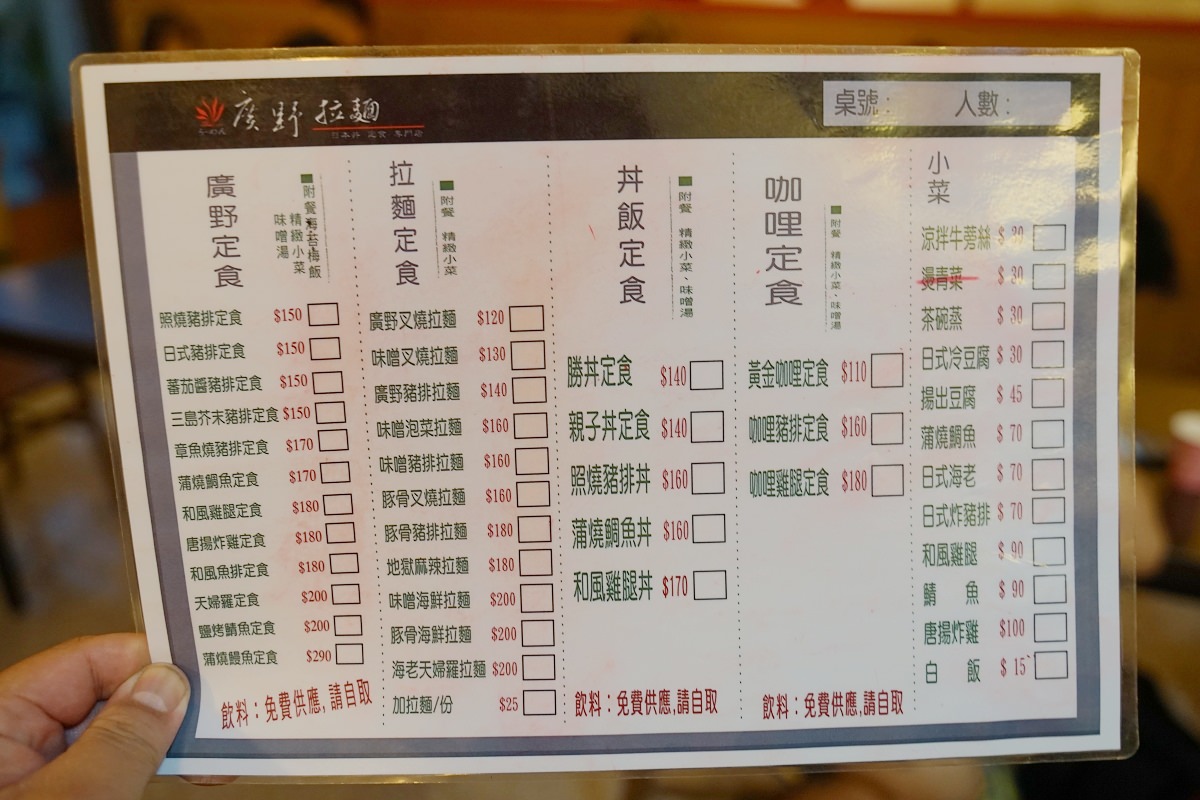 廣野拉麵
らーめん 日本丼 定食 專門店
桌號: 人數:
廣野定食
■附餐 海苔梅飯
精緻小菜
味噌湯
照燒豬排定食 $150
日式豬排定食 $150
蕃茄醬豬排定食 $150
三島芥末豬排定食 $150
章魚燒豬排定食 $170
蒲燒鯛魚定食 $170
和風雞腿定食 $180
唐揚炸雞定食 $180
和風魚排定食 $180
天婦羅定食 $200
鹽烤鯖魚定食 $200
蒲燒鰻魚定食 $290
飲料:免費供應,請自取
拉麵定食
■附餐 精緻小菜
廣野叉燒拉麵 $120
味噌叉燒拉麵 $130
廣野豬排拉麵 $140
味噌泡菜拉麵 $160
味噌豬排拉麵 $160
豚骨叉燒拉麵 $160
豚骨豬排拉麵 $180
地獄麻辣拉麵 $180
味噌海鮮拉麵 $200
豚骨海鮮拉麵 $200
海老天婦羅拉麵 $200
加拉麵/份 $25
丼飯定食
■附餐 精緻小菜、味噌湯
勝丼定食 $140
親子丼定食 $140
照燒豬排丼 $160
蒲燒鯛魚丼 $160
和風雞腿丼 $170
飲料:免費供應,請自取
咖哩定食
■附餐 精緻小菜、味噌湯
黃金咖哩定食 $110
咖哩豬排定食 $160
咖哩雞腿定食 $180
飲料:免費供應,請自取
小菜
涼拌牛蒡絲 $30
燙青菜 $30
茶碗蒸 $30
日式冷豆腐 $30
揚出豆腐 $45
蒲燒鯛魚 $70
日式海老 $70
日式炸豬排 $70
和風雞腿 $90
鯖魚 $90
唐揚炸雞 $100
白飯 $15